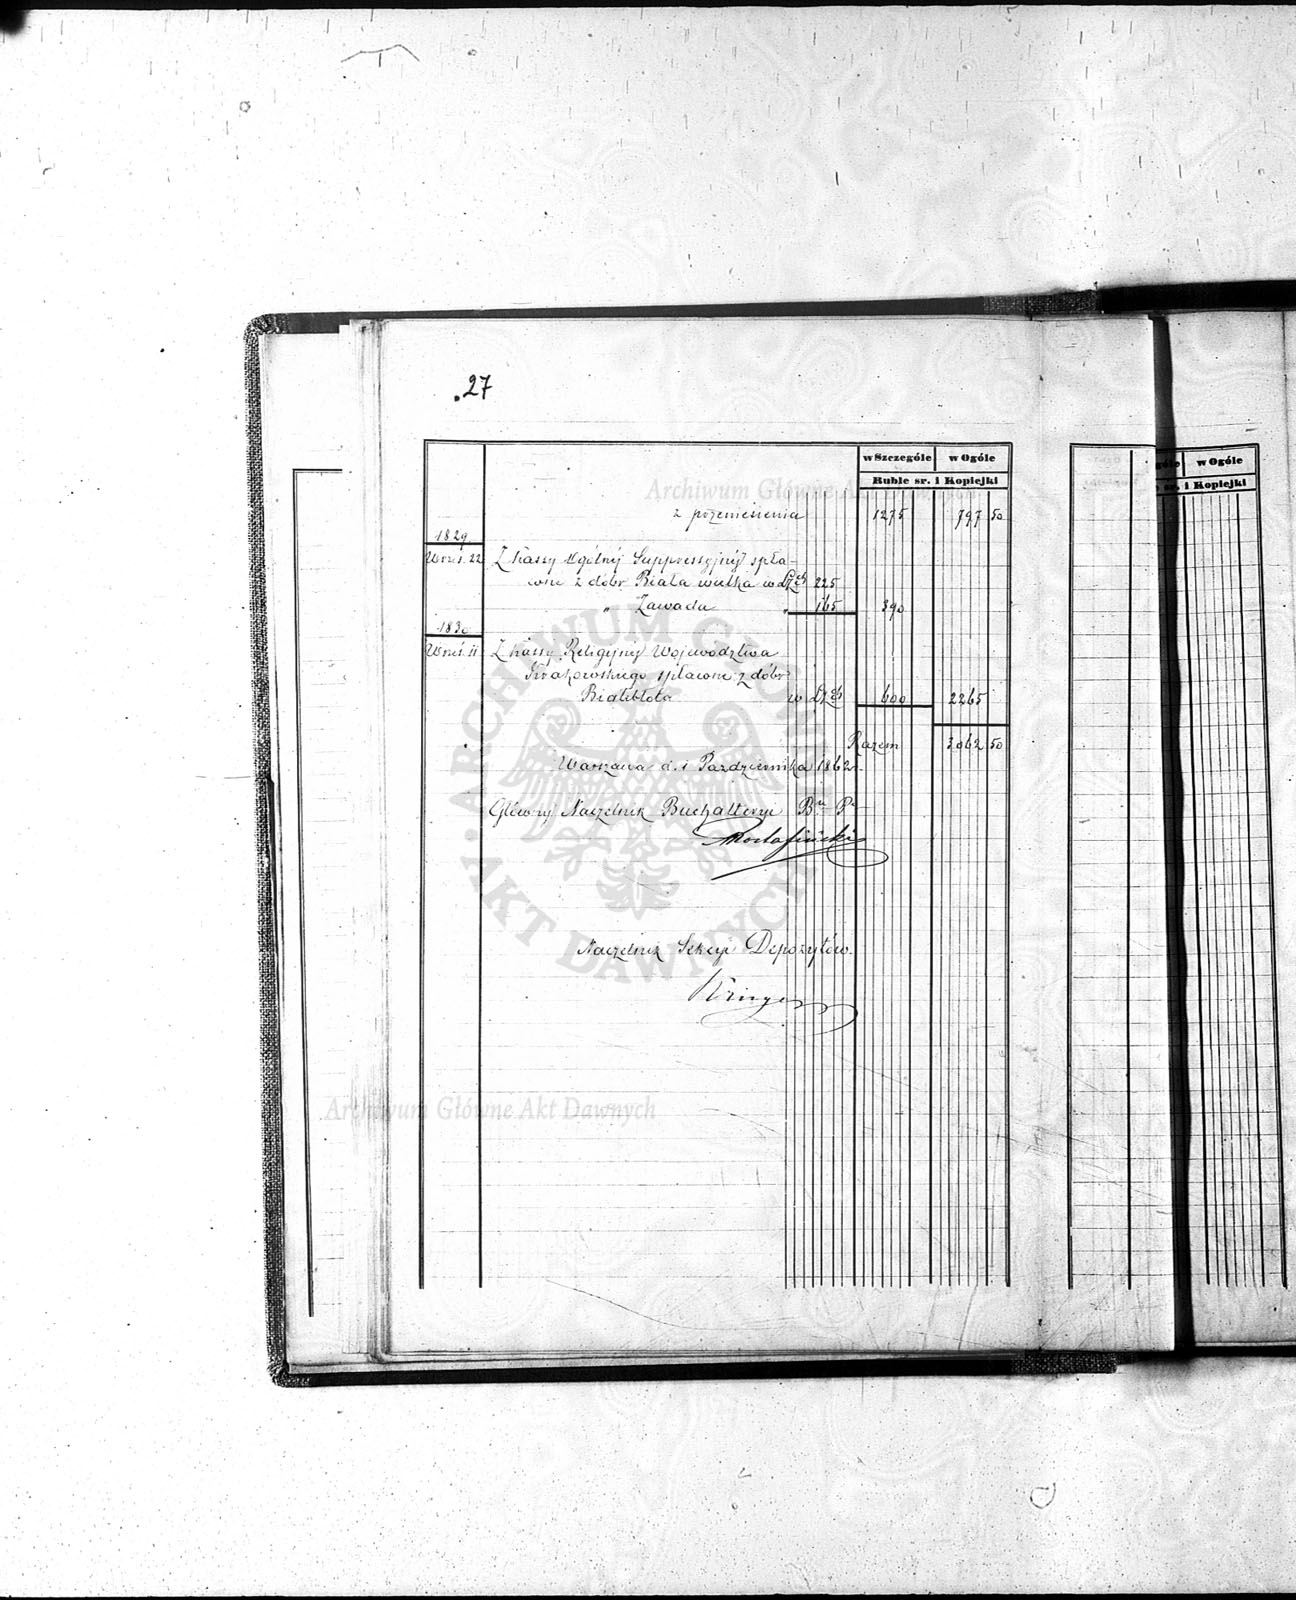 27
w Szczególe w Ogóle
Ruble sr. i Kopiejki
z przeniesienia 1275 797 50
1829.
Wrześ. 22 Z kassy Ogólnéj Suppressyjnéj spła-
cone z dóbr Biała wielka w Lzch 225
" Zawada " 165 390
1830
Wrześ. 11 Z kassy Religijnéj Województwa
Krakowskiego spłacone z dóbr
Białebłota w Lzch 600 2265
Razem 3062 50
Warszawa d. 1 Października 1862 r.
Główny Naczelnik Buchalteryi
Rostafiński
Naczelnik Sekcyi Depozytów.
w Ogóle
sr. i Kopiejki
Archiwum Główne Akt Dawnych
ARCHIWUM GŁÓWNE AKT DAWNYCH
Archiwum Główne Akt Dawnych